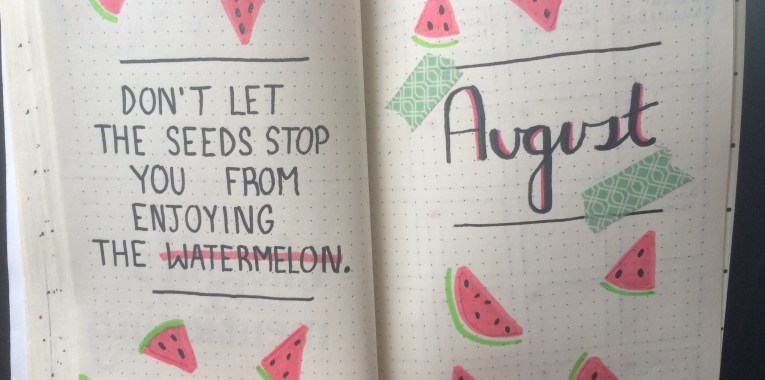 DON'T LET
THE SEEDS STOP
YOU FROM
ENJOYING
THE WATERMELON.
August